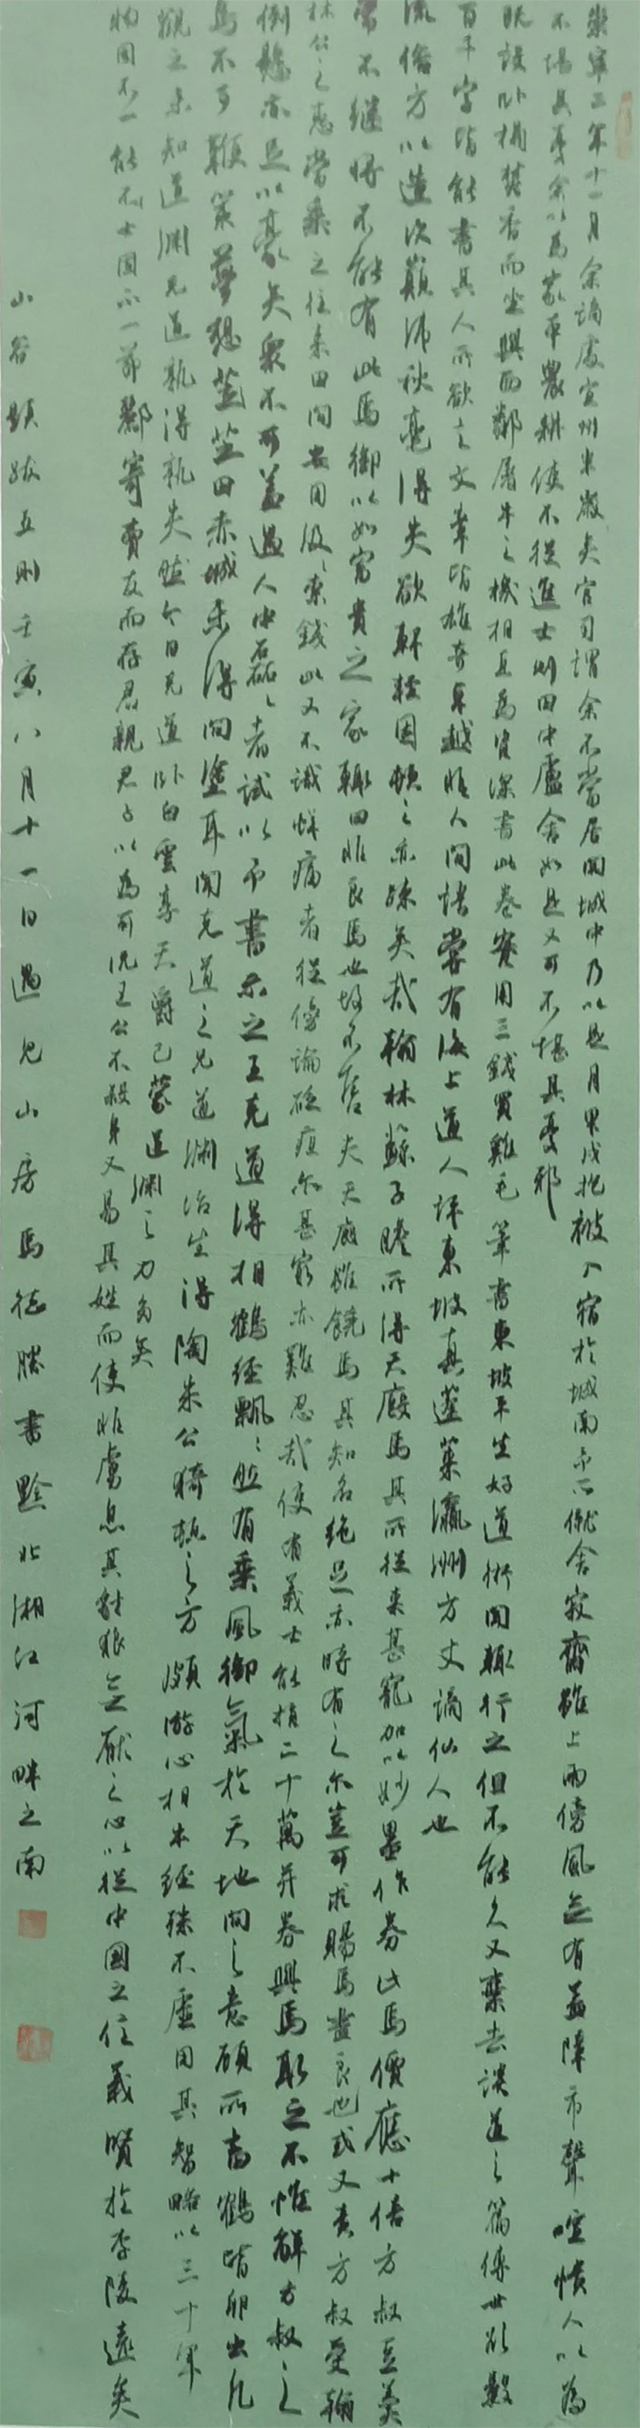 崇寧三年十一月余謫處宜州半歲矣官司謂余不當居關城中乃以是月甲戌抱被入宿於城南予所僦舍寂齋雖上雨傍風無有蓋障市聲喧憒人以為
不堪其憂余以為家本農耕使不從進士則田中廬舍如是又可不堪其憂邪
既設臥榻焚香而坐與西鄰屠牛之機相直為資深書此卷實用三錢買雞毛筆書東坡平生好道術聞輒行之但不能久又棄去談道之篇傳世欲數
百千字皆能書其人所欲言文章皆雄奇卓越非人間語嘗有海上道人評東坡真蓬萊瀛洲方丈謫仙人也
流俗方以造次顛沛秋毫得失欲軒輊困頓之亦疎矣哉翰林蘇子瞻所得天廄馬其所從來甚寵加以妙墨作券此馬價應十倍方叔豆羹
常不繼將不能有此馬御以如富貴之家輒曰非良馬也故不售夫天廄雖饒馬其知名絕足亦時有之爾豈可求賜馬盡良也或又責方叔受翰
林公之惠當乘之往來田間安用汲汲索錢此又不識蛘痛者從傍論砭疽爾甚窮亦難忍哉使有義士能捐二十萬并券與馬取之不惟解方叔之
倒懸亦足以豪矣衆不可蓋遇人中磊磊者試以予書示之王克道得相鶴經飄飄然有乘風御氣於天地間之意顧所畜鶴皆卵出凡
馬不可鞭策夢想芝田赤城未得間塗耳聞克道之兄道淵治生得陶朱公猗頓之方頗游心相牛經殊不虛用其智略以三十年
觀之未知道淵克道孰得孰失然今日克道臥白雲享天爵已蒙道淵之力多矣
物固不一能士固不一節酈寄賣友而存君親君子以為可況王公不殺身又易其姓而使非虜息其豺狼無厭之心以從中國之信義賢於李陵遠矣
山谷題跋五則壬寅八月十一日過見山房馬德勝書黔北湘江河畔之南